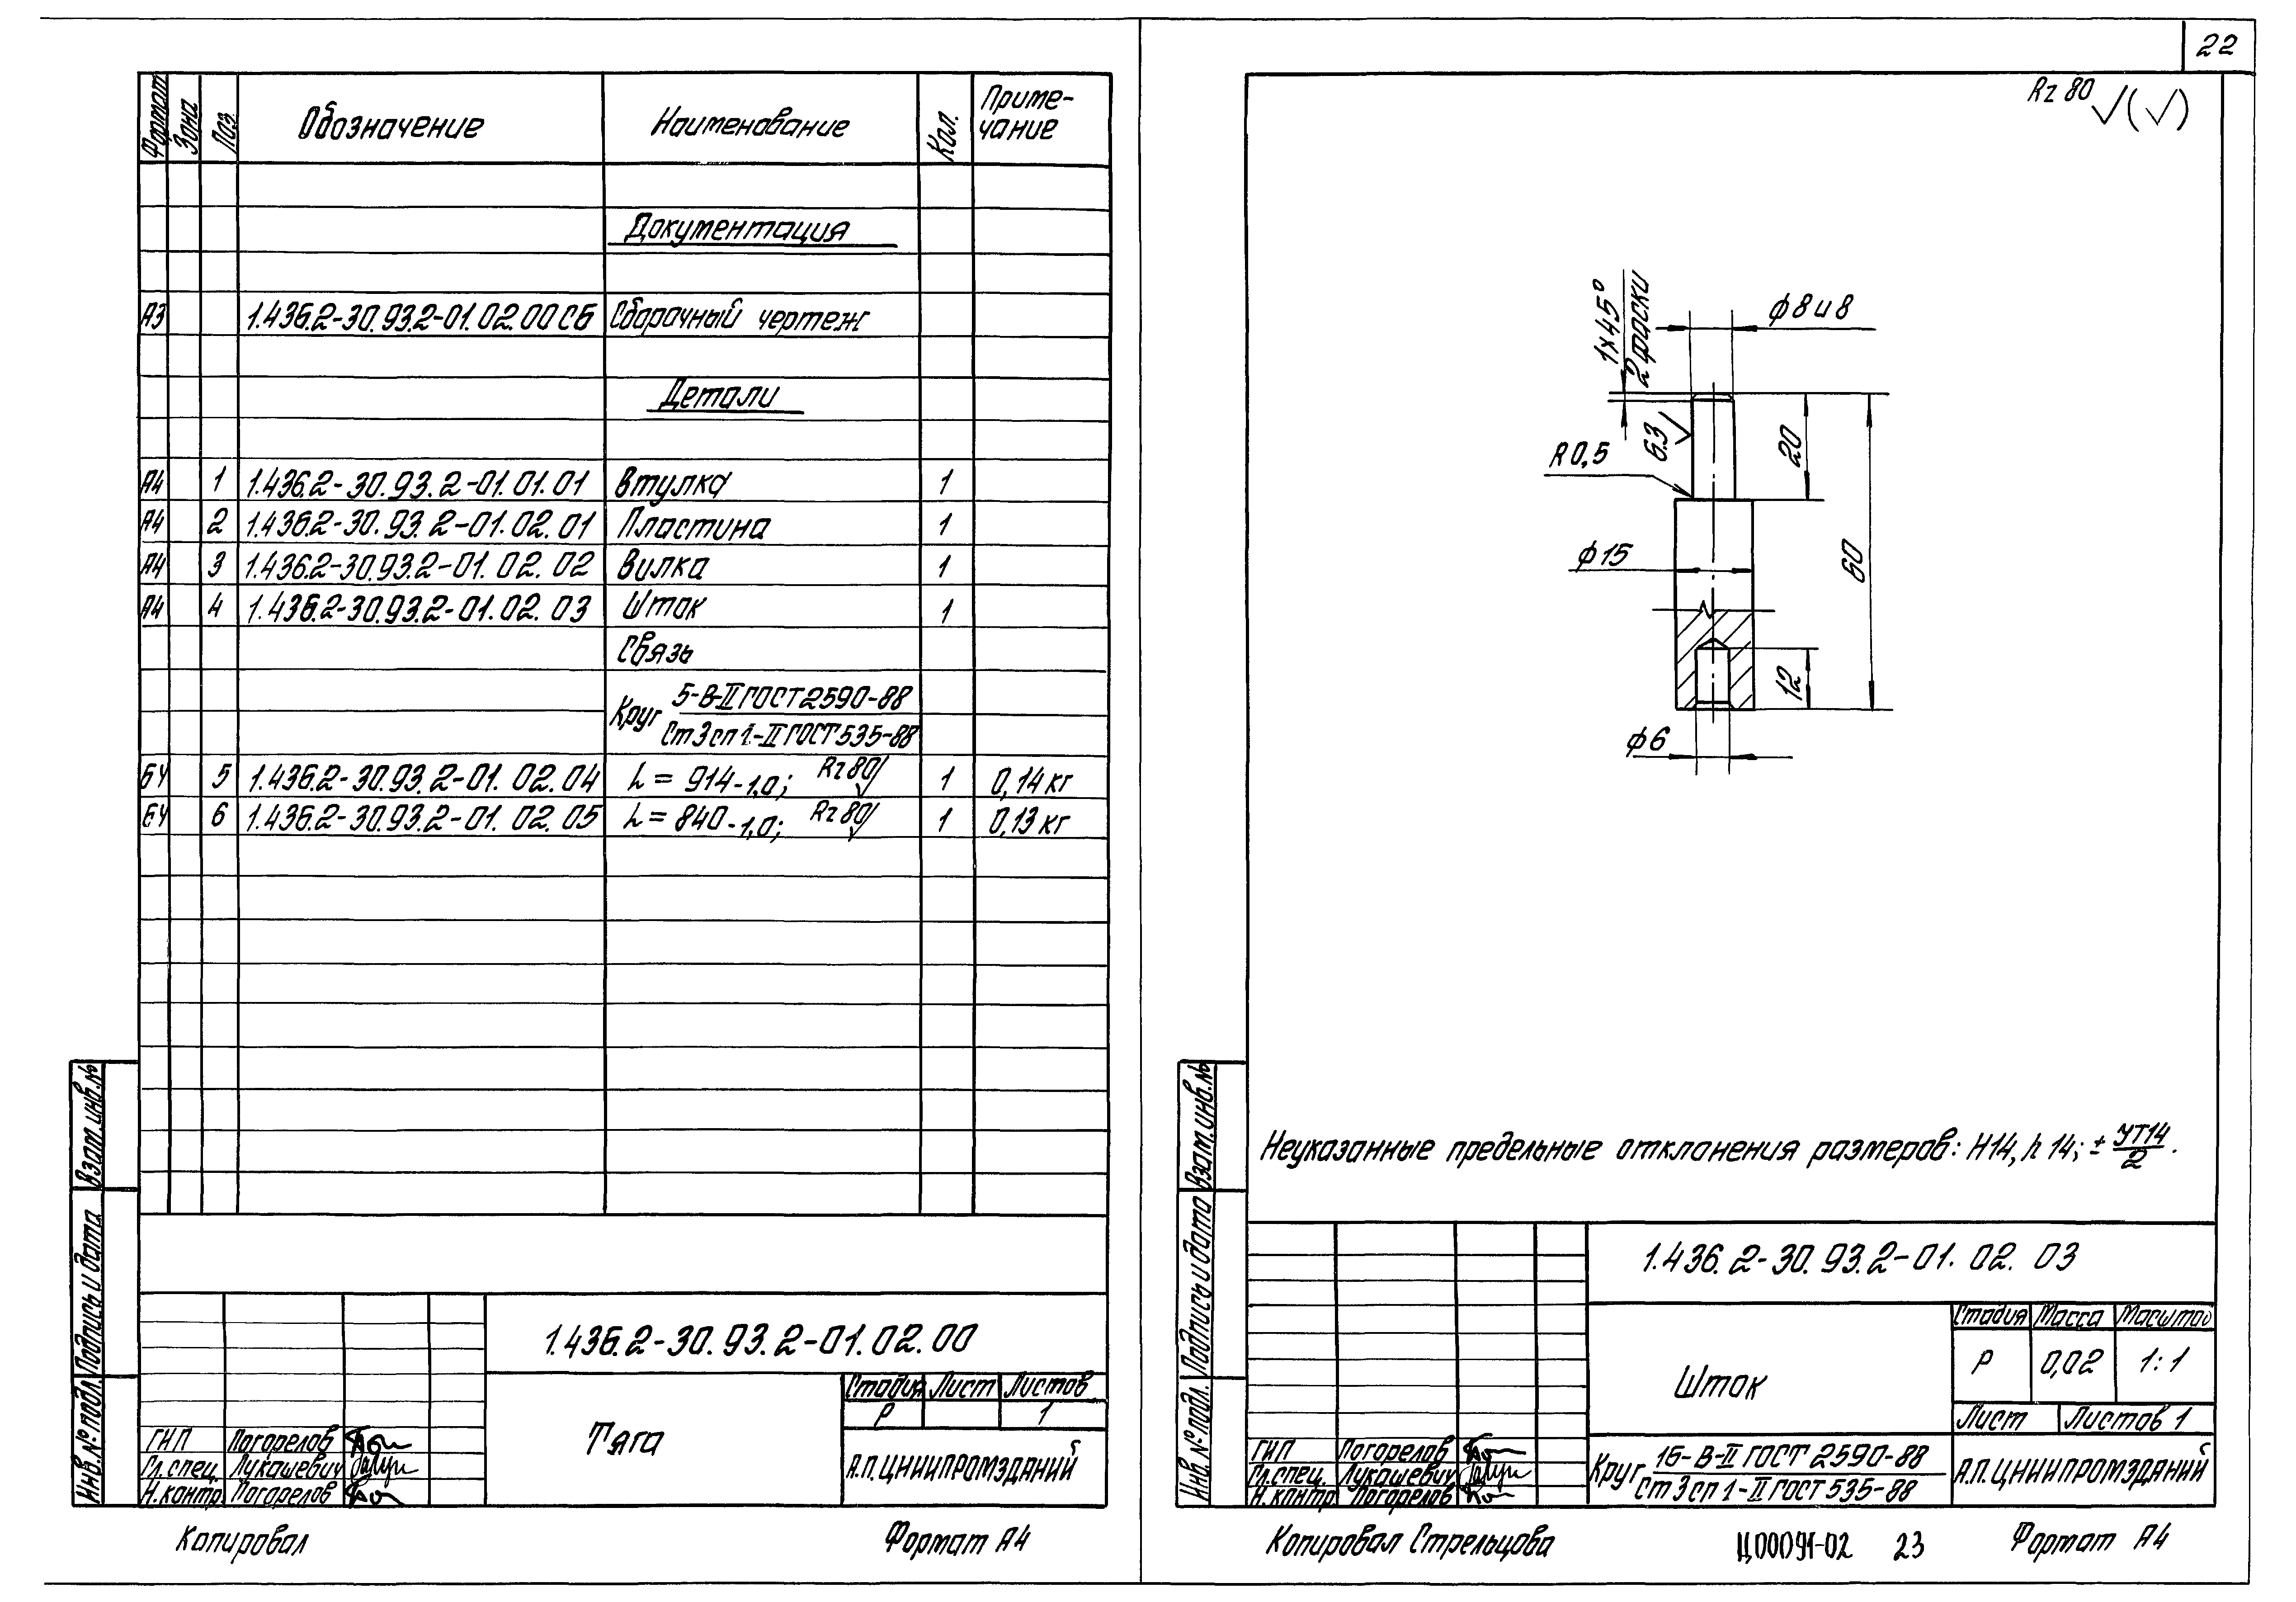 22
Формат Зона Поз. Обозначение Наименование Кол. Приме-
чание
Документация
А3 1.436.2-30.93.2-01.02.00 СБ Сборочный чертеж
Детали
А4 1 1.436.2-30.93.2-01.01.01 Втулка 1
А4 2 1.436.2-30.93.2-01.02.01 Пластина 1
А4 3 1.436.2-30.93.2-01.02.02 Вилка 1
А4 4 1.436.2-30.93.2-01.02.03 Шток 1
Связь
Круг 5-В-II ГОСТ 2590-88
Ст 3 сп 1-II ГОСТ 535-88
БЧ 5 1.436.2-30.93.2-01.02.04 L = 914-1,0; Rz 80 1 0,14 кг
БЧ 6 1.436.2-30.93.2-01.02.05 L = 840-1,0; Rz 80 1 0,13 кг
Взам. инв. №
Подпись и дата
Инв. № подл.
1.436.2-30.93.2-01.02.00
Тяга
Стадия Лист Листов
Р 1
ГИП Погорелов
Гл. спец. Лукашевич
Н. контр. Погорелов
А.П. ЦНИИПРОМЗДАНИЙ
Копировал Формат А4
Rz 80 √(√)
1×45°
2 фаски
ϕ8 и 8
6.3
R 0,5
20
ϕ15
60
12
ϕ6
Неуказанные предельные отклонения размеров: Н14, h 14; ± УТ14/2.
Взам. инв. №
Подпись и дата
Инв. № подл.
1.436.2-30.93.2-01.02.03
Шток
Стадия Масса Масштаб
Р 0,02 1:1
Лист Листов 1
ГИП Погорелов
Гл. спец. Лукашевич
Н. контр. Погорелов
Круг 16-В-II ГОСТ 2590-88
Ст 3 сп 1-II ГОСТ 535-88
А.П. ЦНИИПРОМЗДАНИЙ
Копировал Стрельцова Ц00091-02 23 Формат А4